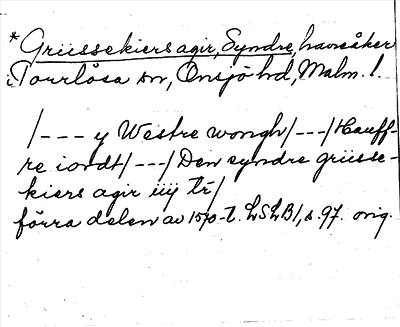 *Grüssekiers agir, Syndre, havsåker
i Torrlösa sn, Onsjö hd, Malm. l.
/--- y Westre wongh/---/Hauff-
re iordt/---/Den syndre grüsse-
kiers agir iiij tr/
förra delen av 1570-t. LSLB1, s. 97. orig.